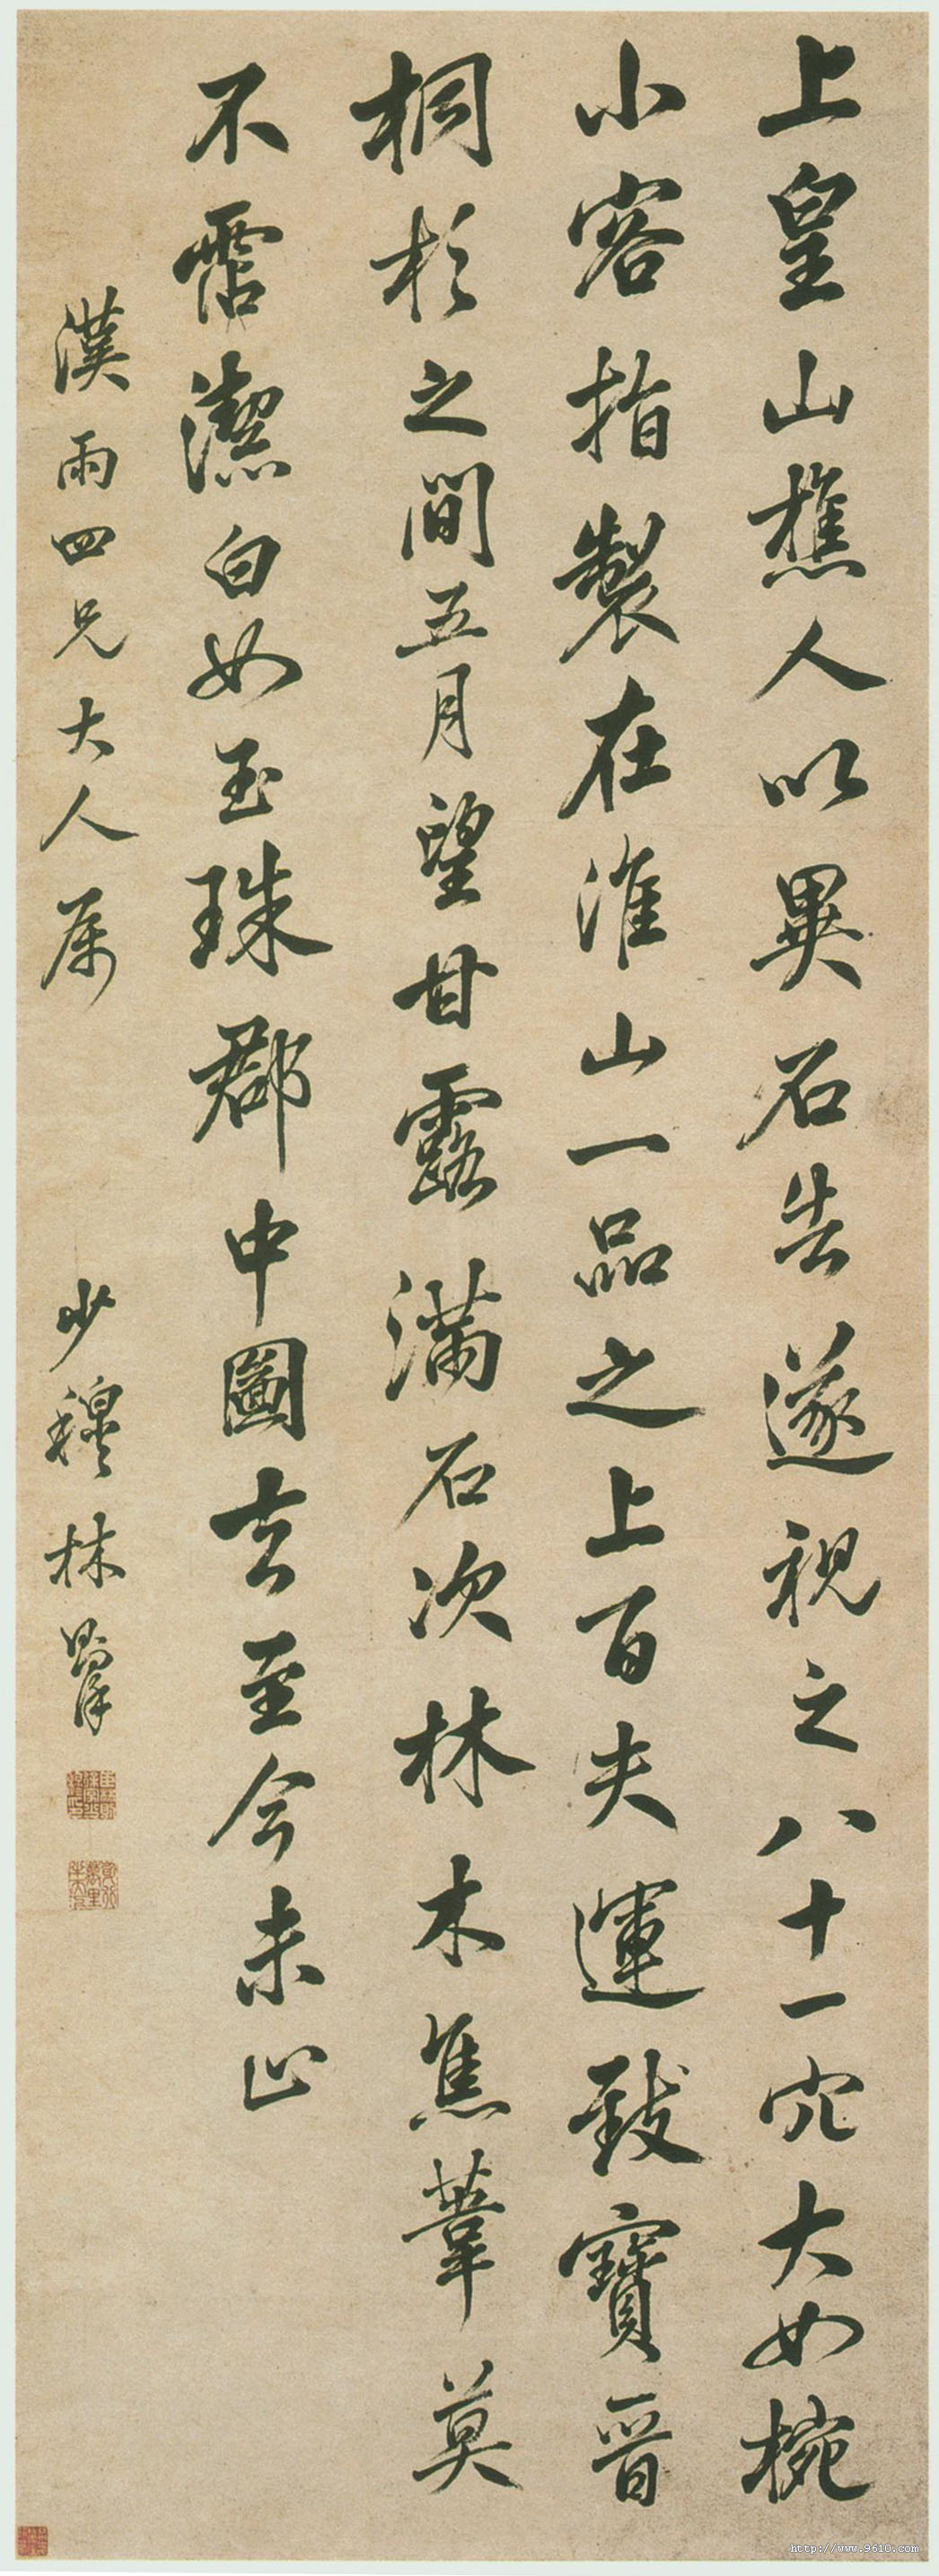 上皇山樵人以異石告遂視之八十一穴大如椀
小容指製在淮山一品之上百夫運致寶晉
桐杉之間五月望甘露滿石次林木焦葦莫
不霑潔白如玉珠郡中圖去至今未止
漢雨四兄大人屬
少穆林則徐
http://www.9610.com